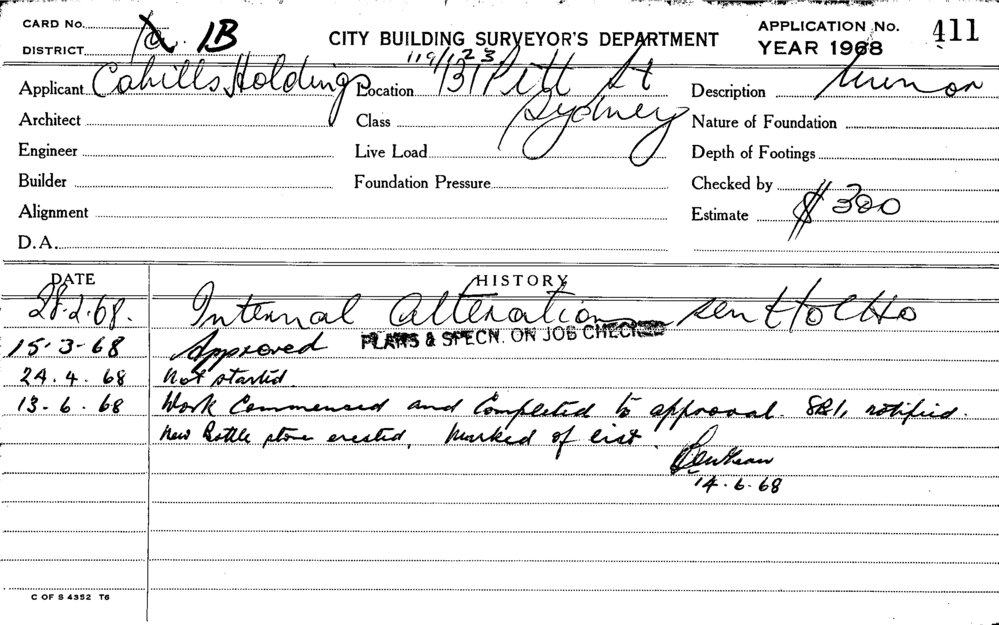 CARD No. 1a 1B
DISTRICT
CITY BUILDING SURVEYOR'S DEPARTMENT
APPLICATION No. 411
YEAR 1968
Applicant Cahills Holdings
Location 119/123 131 Pitt St
Sydney
Description Minor
Architect
Class
Nature of Foundation
Engineer
Live Load
Depth of Footings
Builder
Foundation Pressure
Checked by
Alignment
Estimate $300
D.A.
DATE HISTORY
28.2.68. Internal Alteration
15.3-68 Approved PLANS & SPECN. ON JOB CHECKED
24.4.68 Not started.
13.6.68 Work Commenced and Completed to approval. notified.
New Bottle store erected, Marked of list.
14.6.68
C OF S 4352 T6